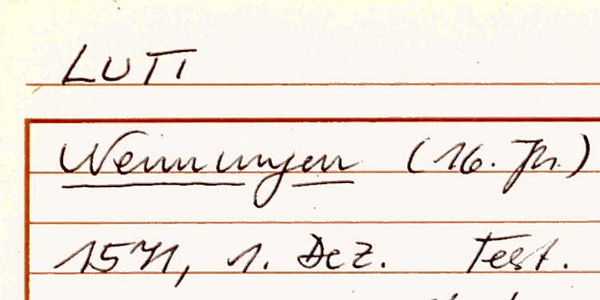 LUTI
Wennungen (16. Jh.)
1571, 1. Dez. Test.